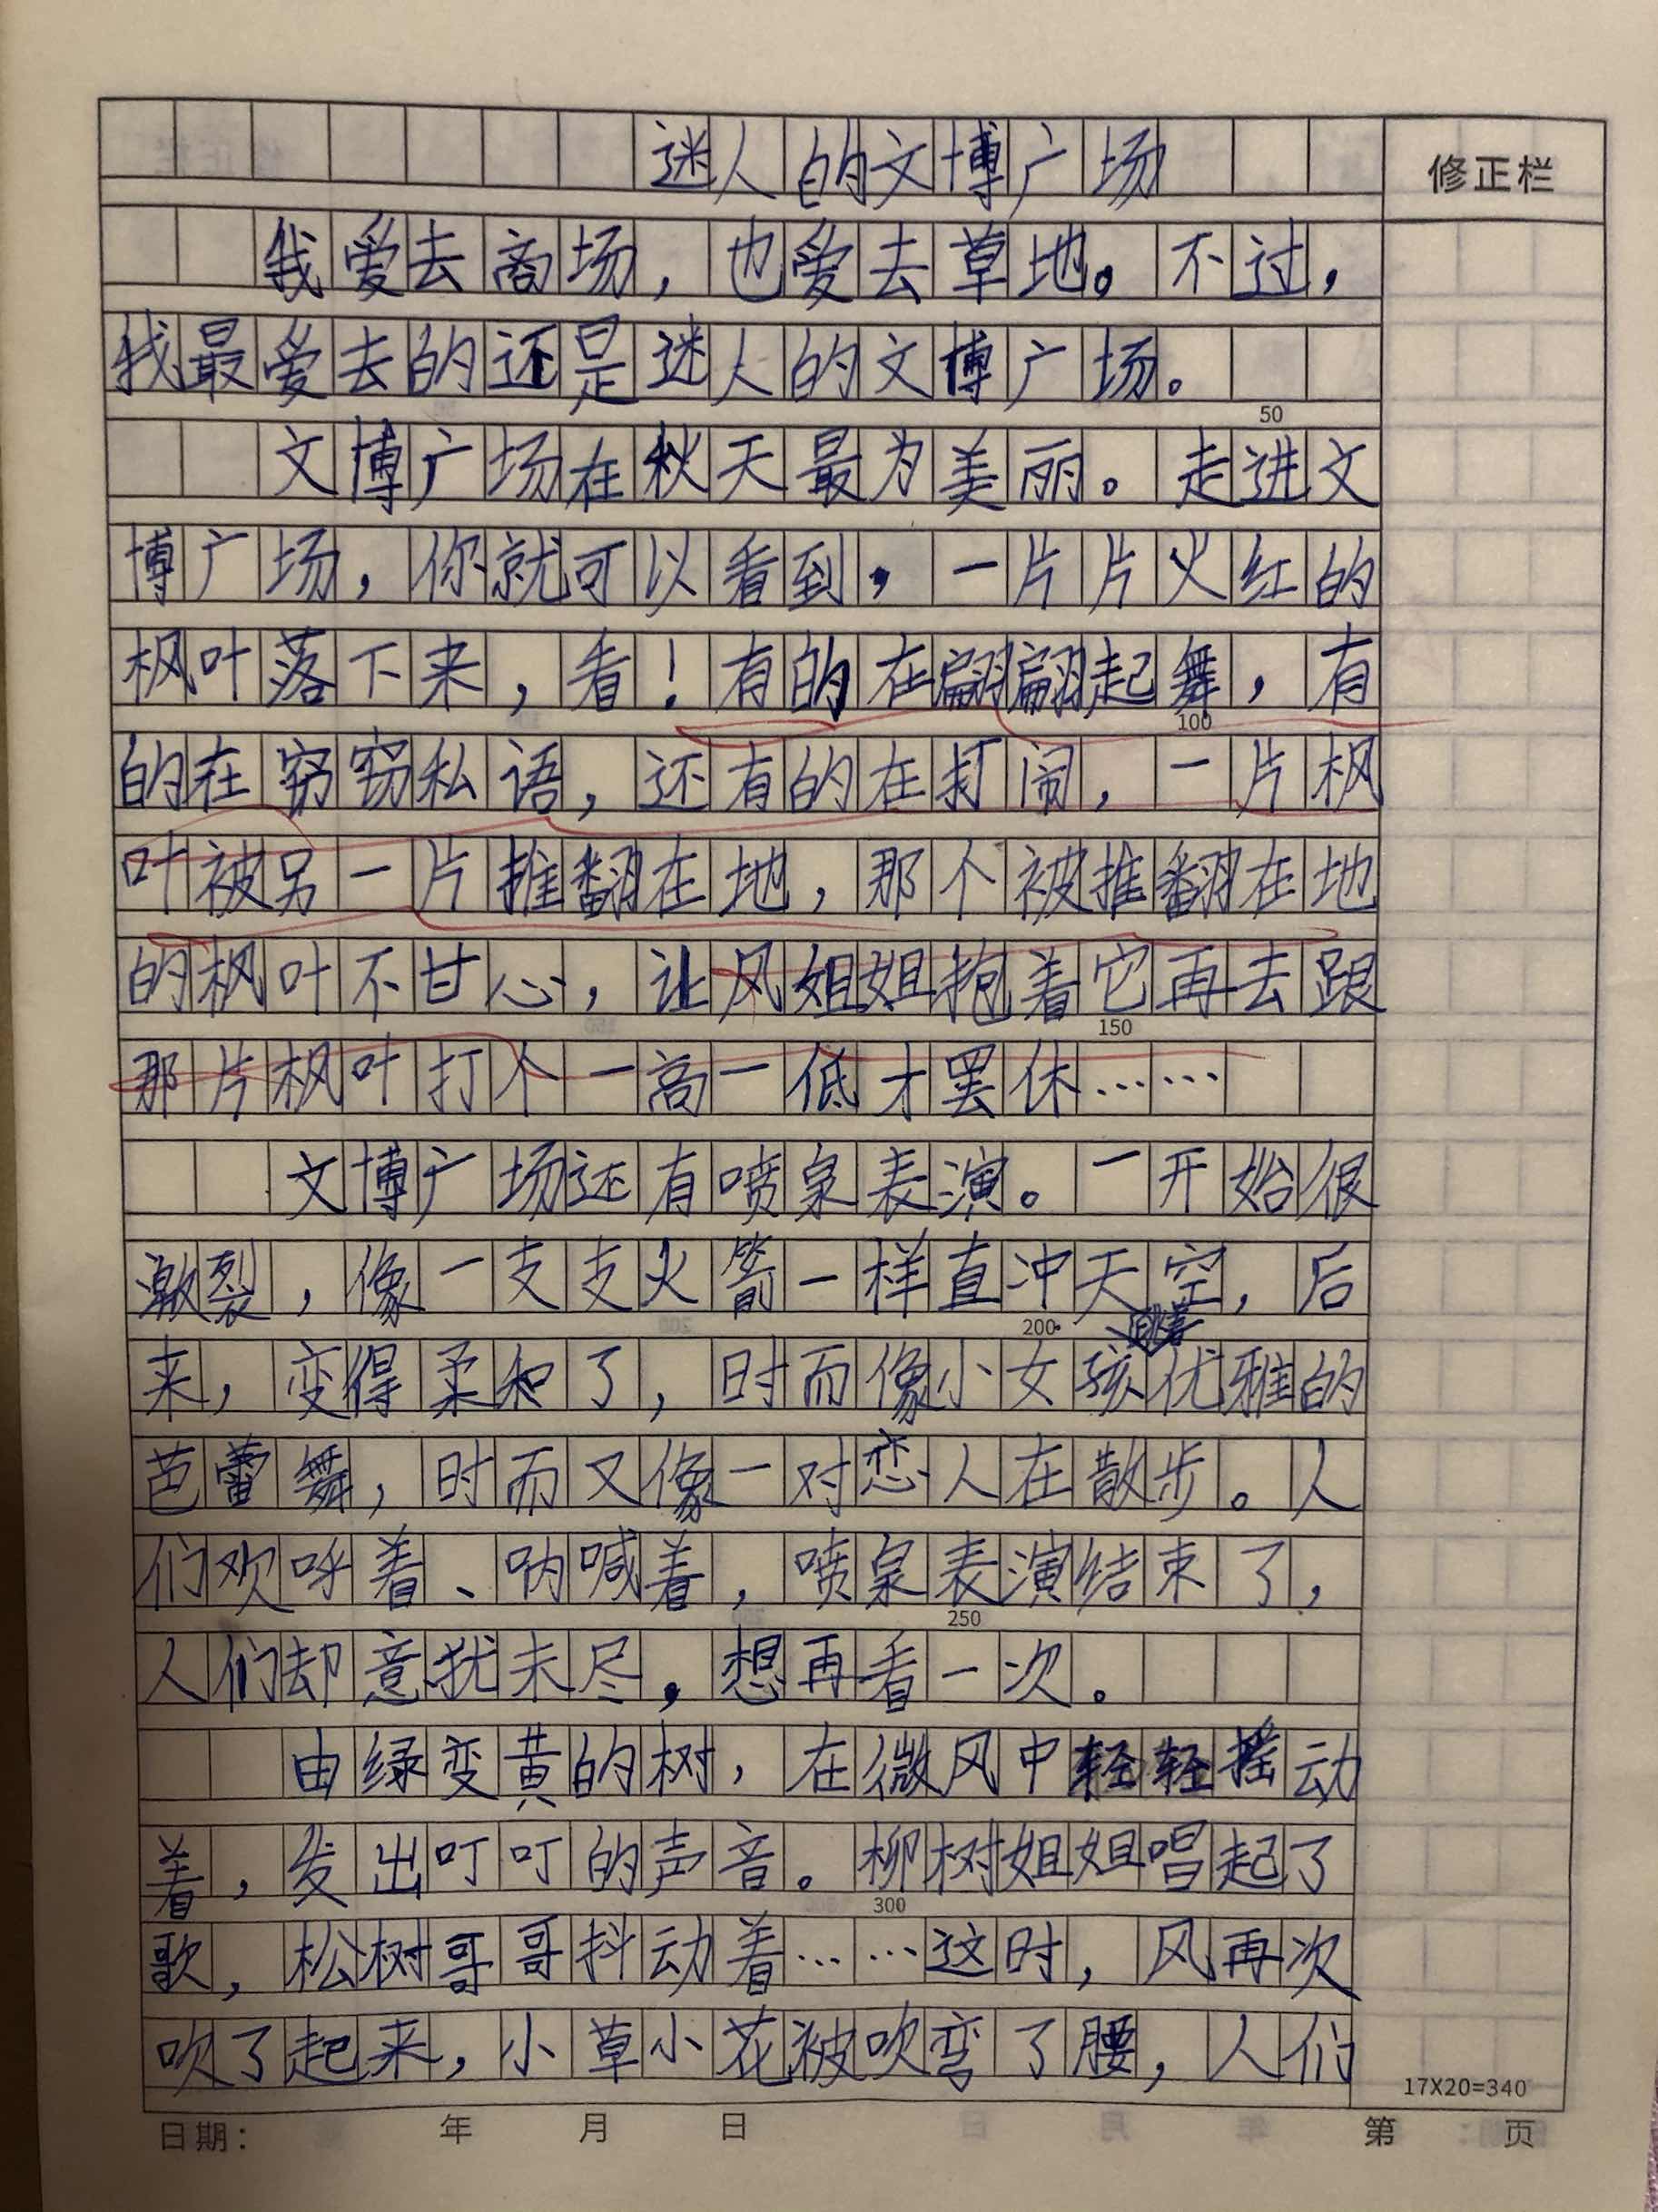 迷人的文博广场
修正栏
我爱去商场，也爱去草地。不过，
我最爱去的还是迷人的文博广场。
50
文博广场在秋天最为美丽。走进文
博广场，你就可以看到，一片片火红的
枫叶落下来，看！有的在翩翩起舞，有
100
的在窃窃私语，还有的在打闹，一片枫
叶被另一片推翻在地，那个被推翻在地
的枫叶不甘心，让风姐姐抱着它再去跟
150
那片枫叶打个一高一低才罢休……
文博广场还有喷泉表演。一开始很
激裂，像一支支火箭一样直冲天空，后
200
来，变得柔和了，时而像小女孩优雅的
芭蕾舞，时而又像一对恋人在散步。人
们欢呼着、呐喊着，喷泉表演结束了，
250
人们却意犹未尽，想再看一次。
由绿变黄的树，在微风中轻轻摇动
着，发出叮叮的声音。柳树姐姐唱起了
300
歌，松树哥哥抖动着……这时，风再次
吹了起来，小草小花被吹弯了腰，人们
17X20=340
日期： 年 月 日 第 页